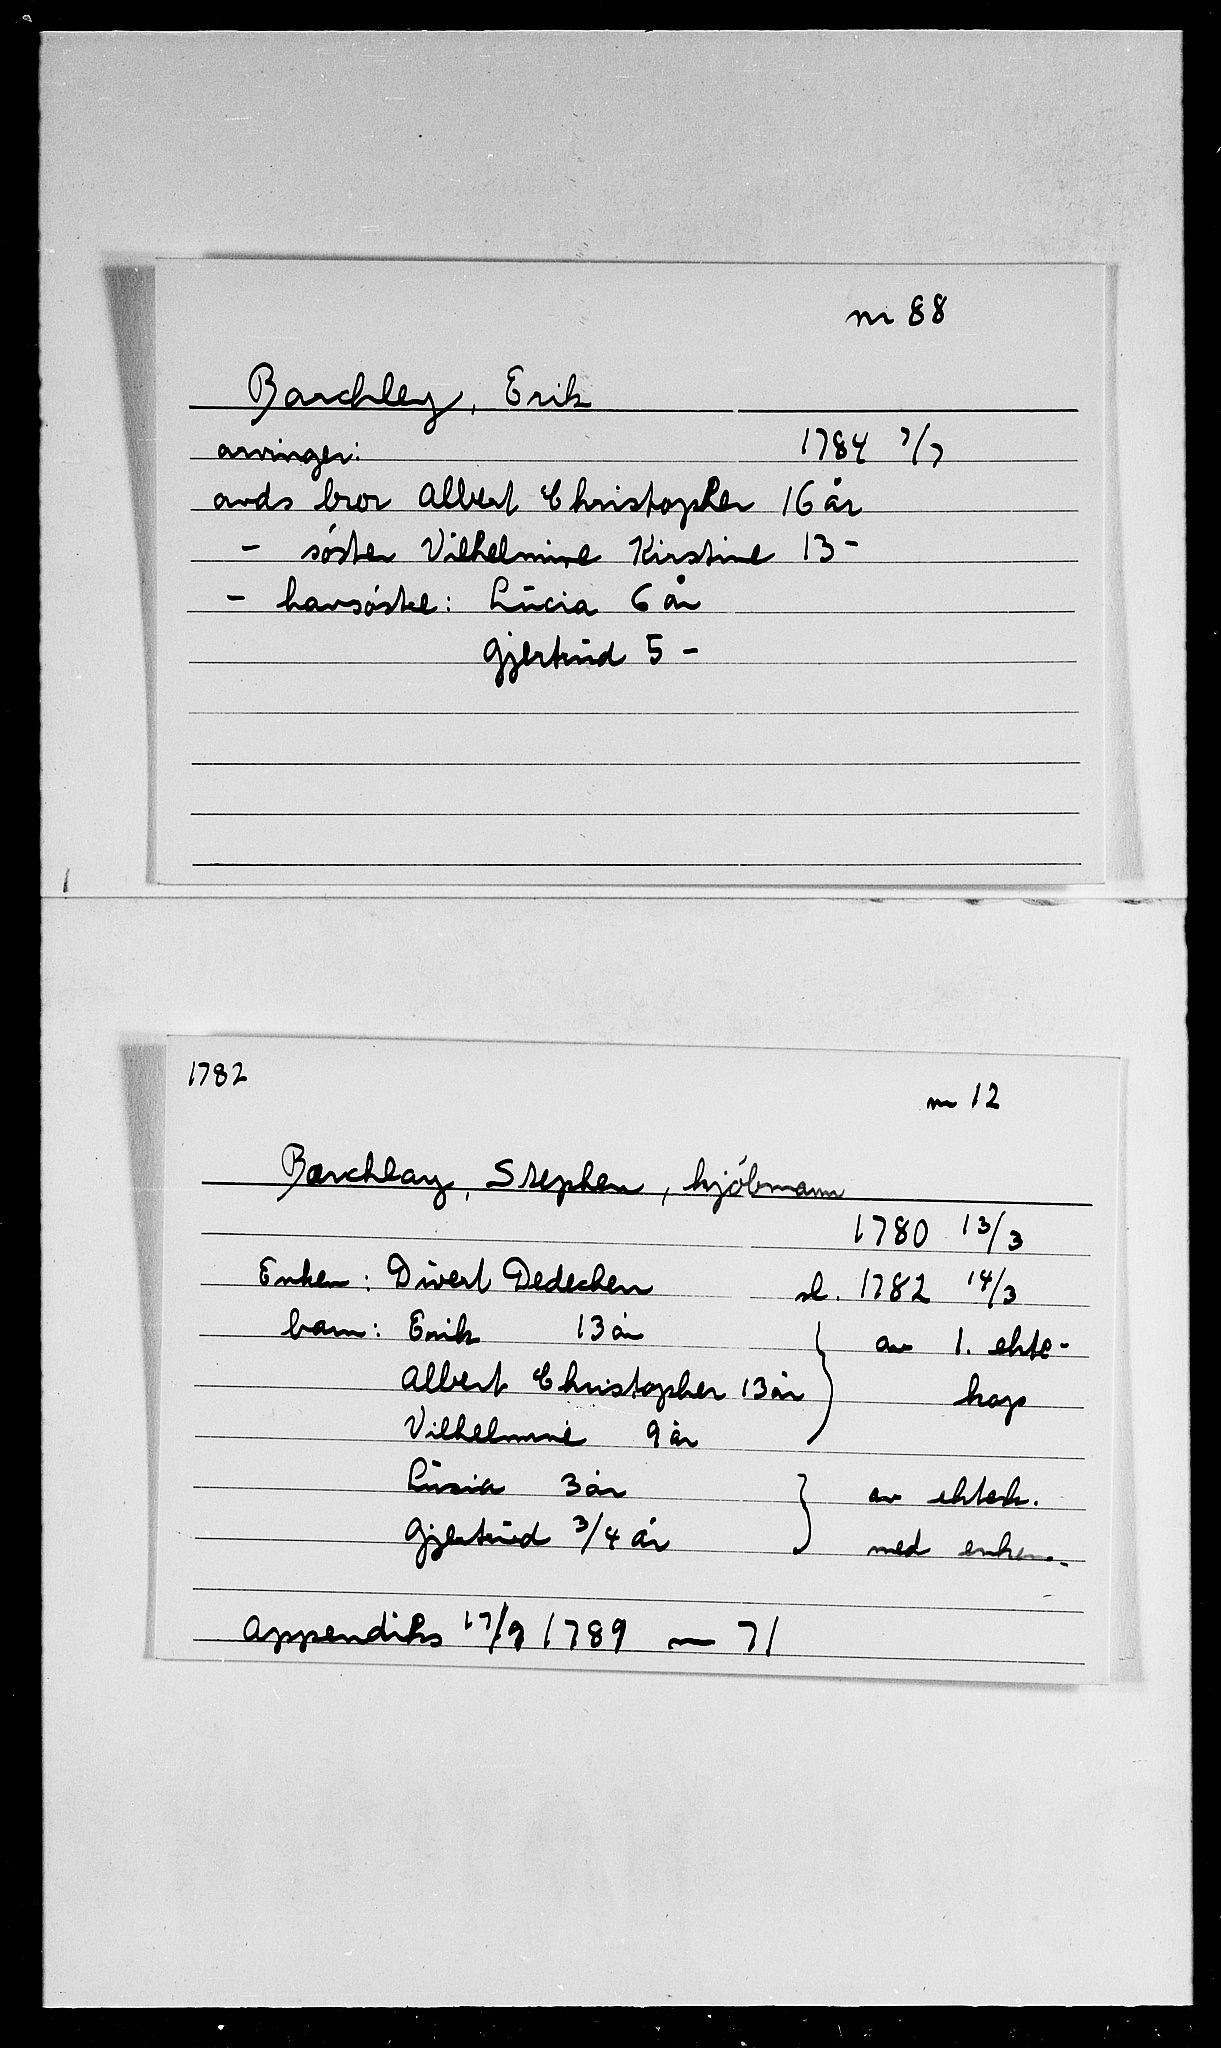 nr 88
Barchley, Erik
arvinger: 1784 7/7
avds bror Albert Christopher 16 år
- söster Vilhelmine Kirstine 13 -
- havsöstre: Lucia 6 år
Gjertrud 5 -
1782
nr 12
Barchlay, Stephen, kjöbmann
1780 13/3
Enken: Divert Dedechen sl. 1782 14/3
barn: Erik 13 år } av 1. ekte-
Albert Christopher 13 år skap
Vilhelmine 9 år
Lusia 3 år } av ektesk.
Gjertrud 3/4 år med enken.
Appendiks 17/9 1789 nr 71